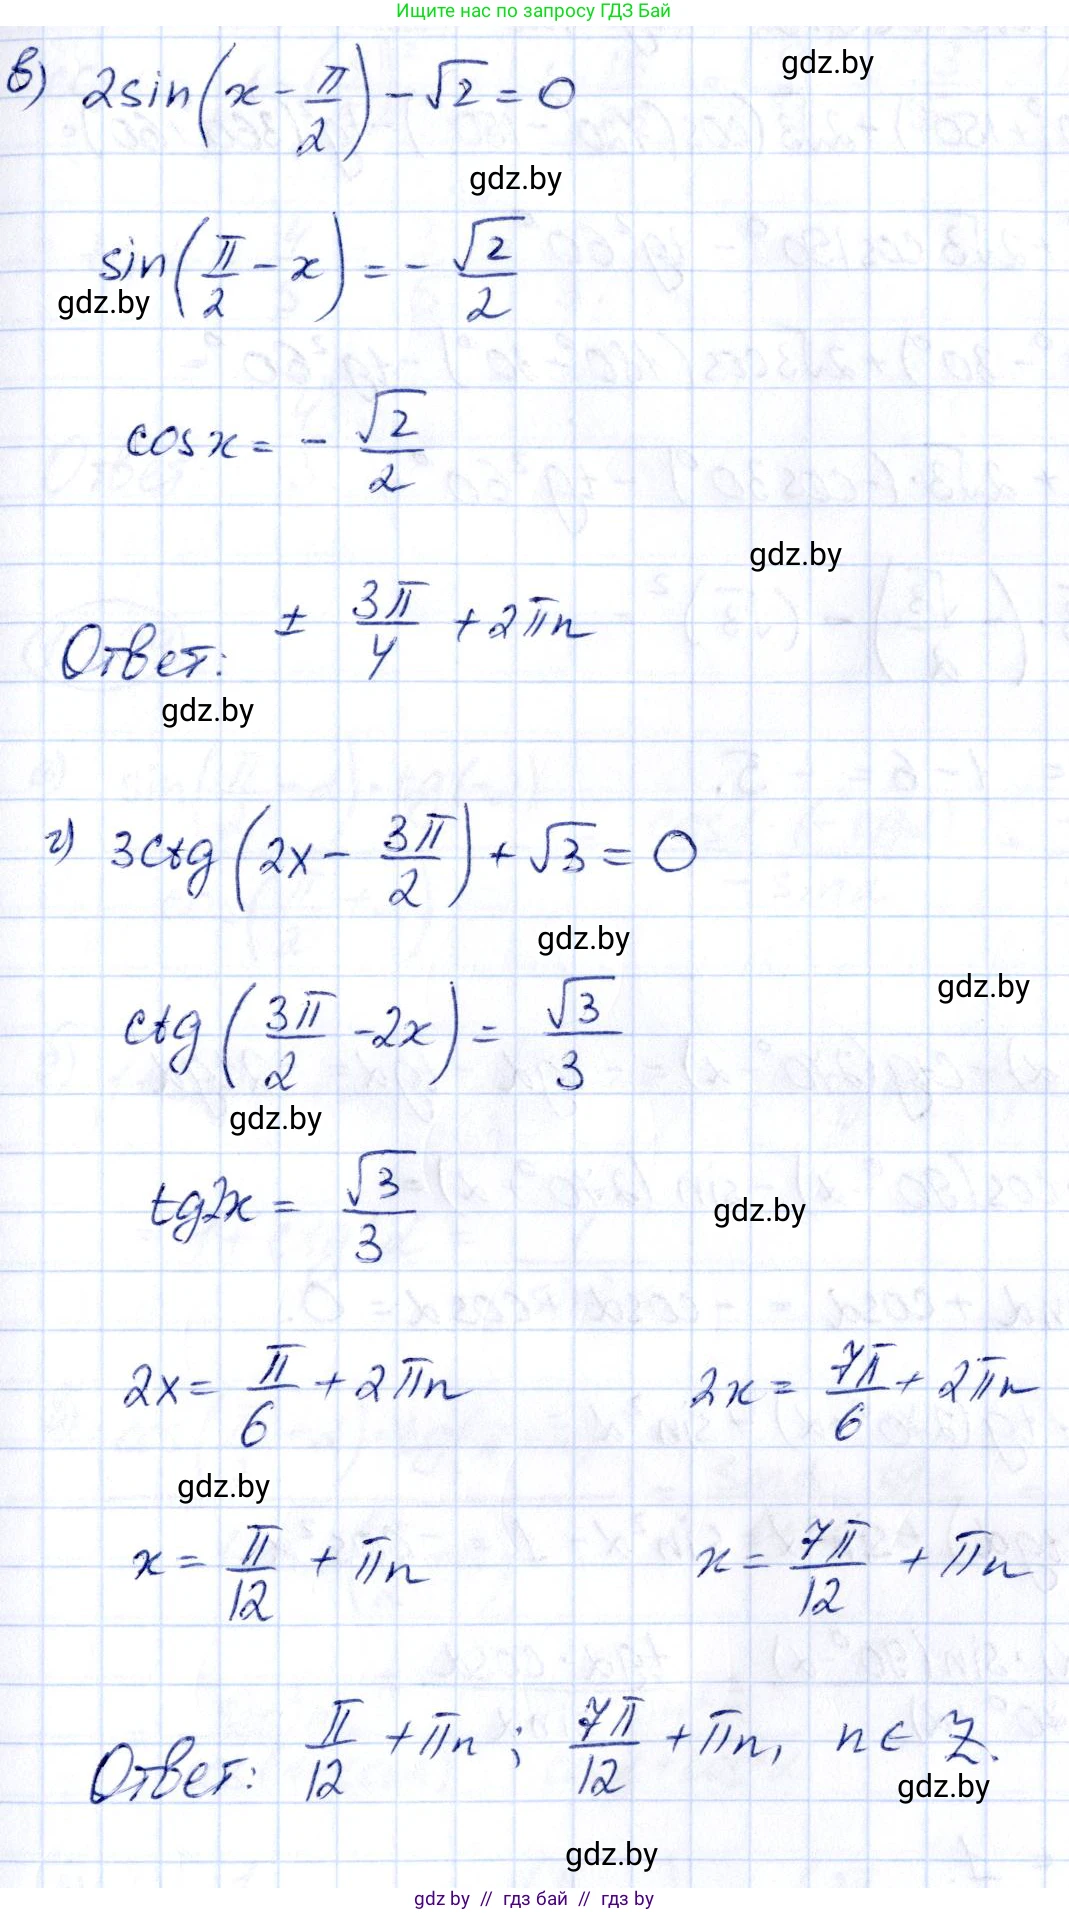 Ищите нас по запросу ГДЗ Бай
в) 2sin(x - π/2) - √2 = 0
gdz.by
gdz.by
sin(π/2 - x) = - √2/2
gdz.by
cos x = - √2/2
gdz.by
Ответ: ± 3π/4 + 2πn
gdz.by
г) 3ctg(2x - 3π/2) + √3 = 0
gdz.by
gdz.by
ctg(3π/2 - 2x) = √3/3
gdz.by
tg2x = √3/3
gdz.by
2x = π/6 + 2πn 2x = 7π/6 + 2πn
gdz.by
x = π/12 + πn x = 7π/12 + πn
Ответ: π/12 + πn ; 7π/12 + πn, n ∈ Z.
gdz.by
gdz.by
gdz by // гдз бай // гдз by